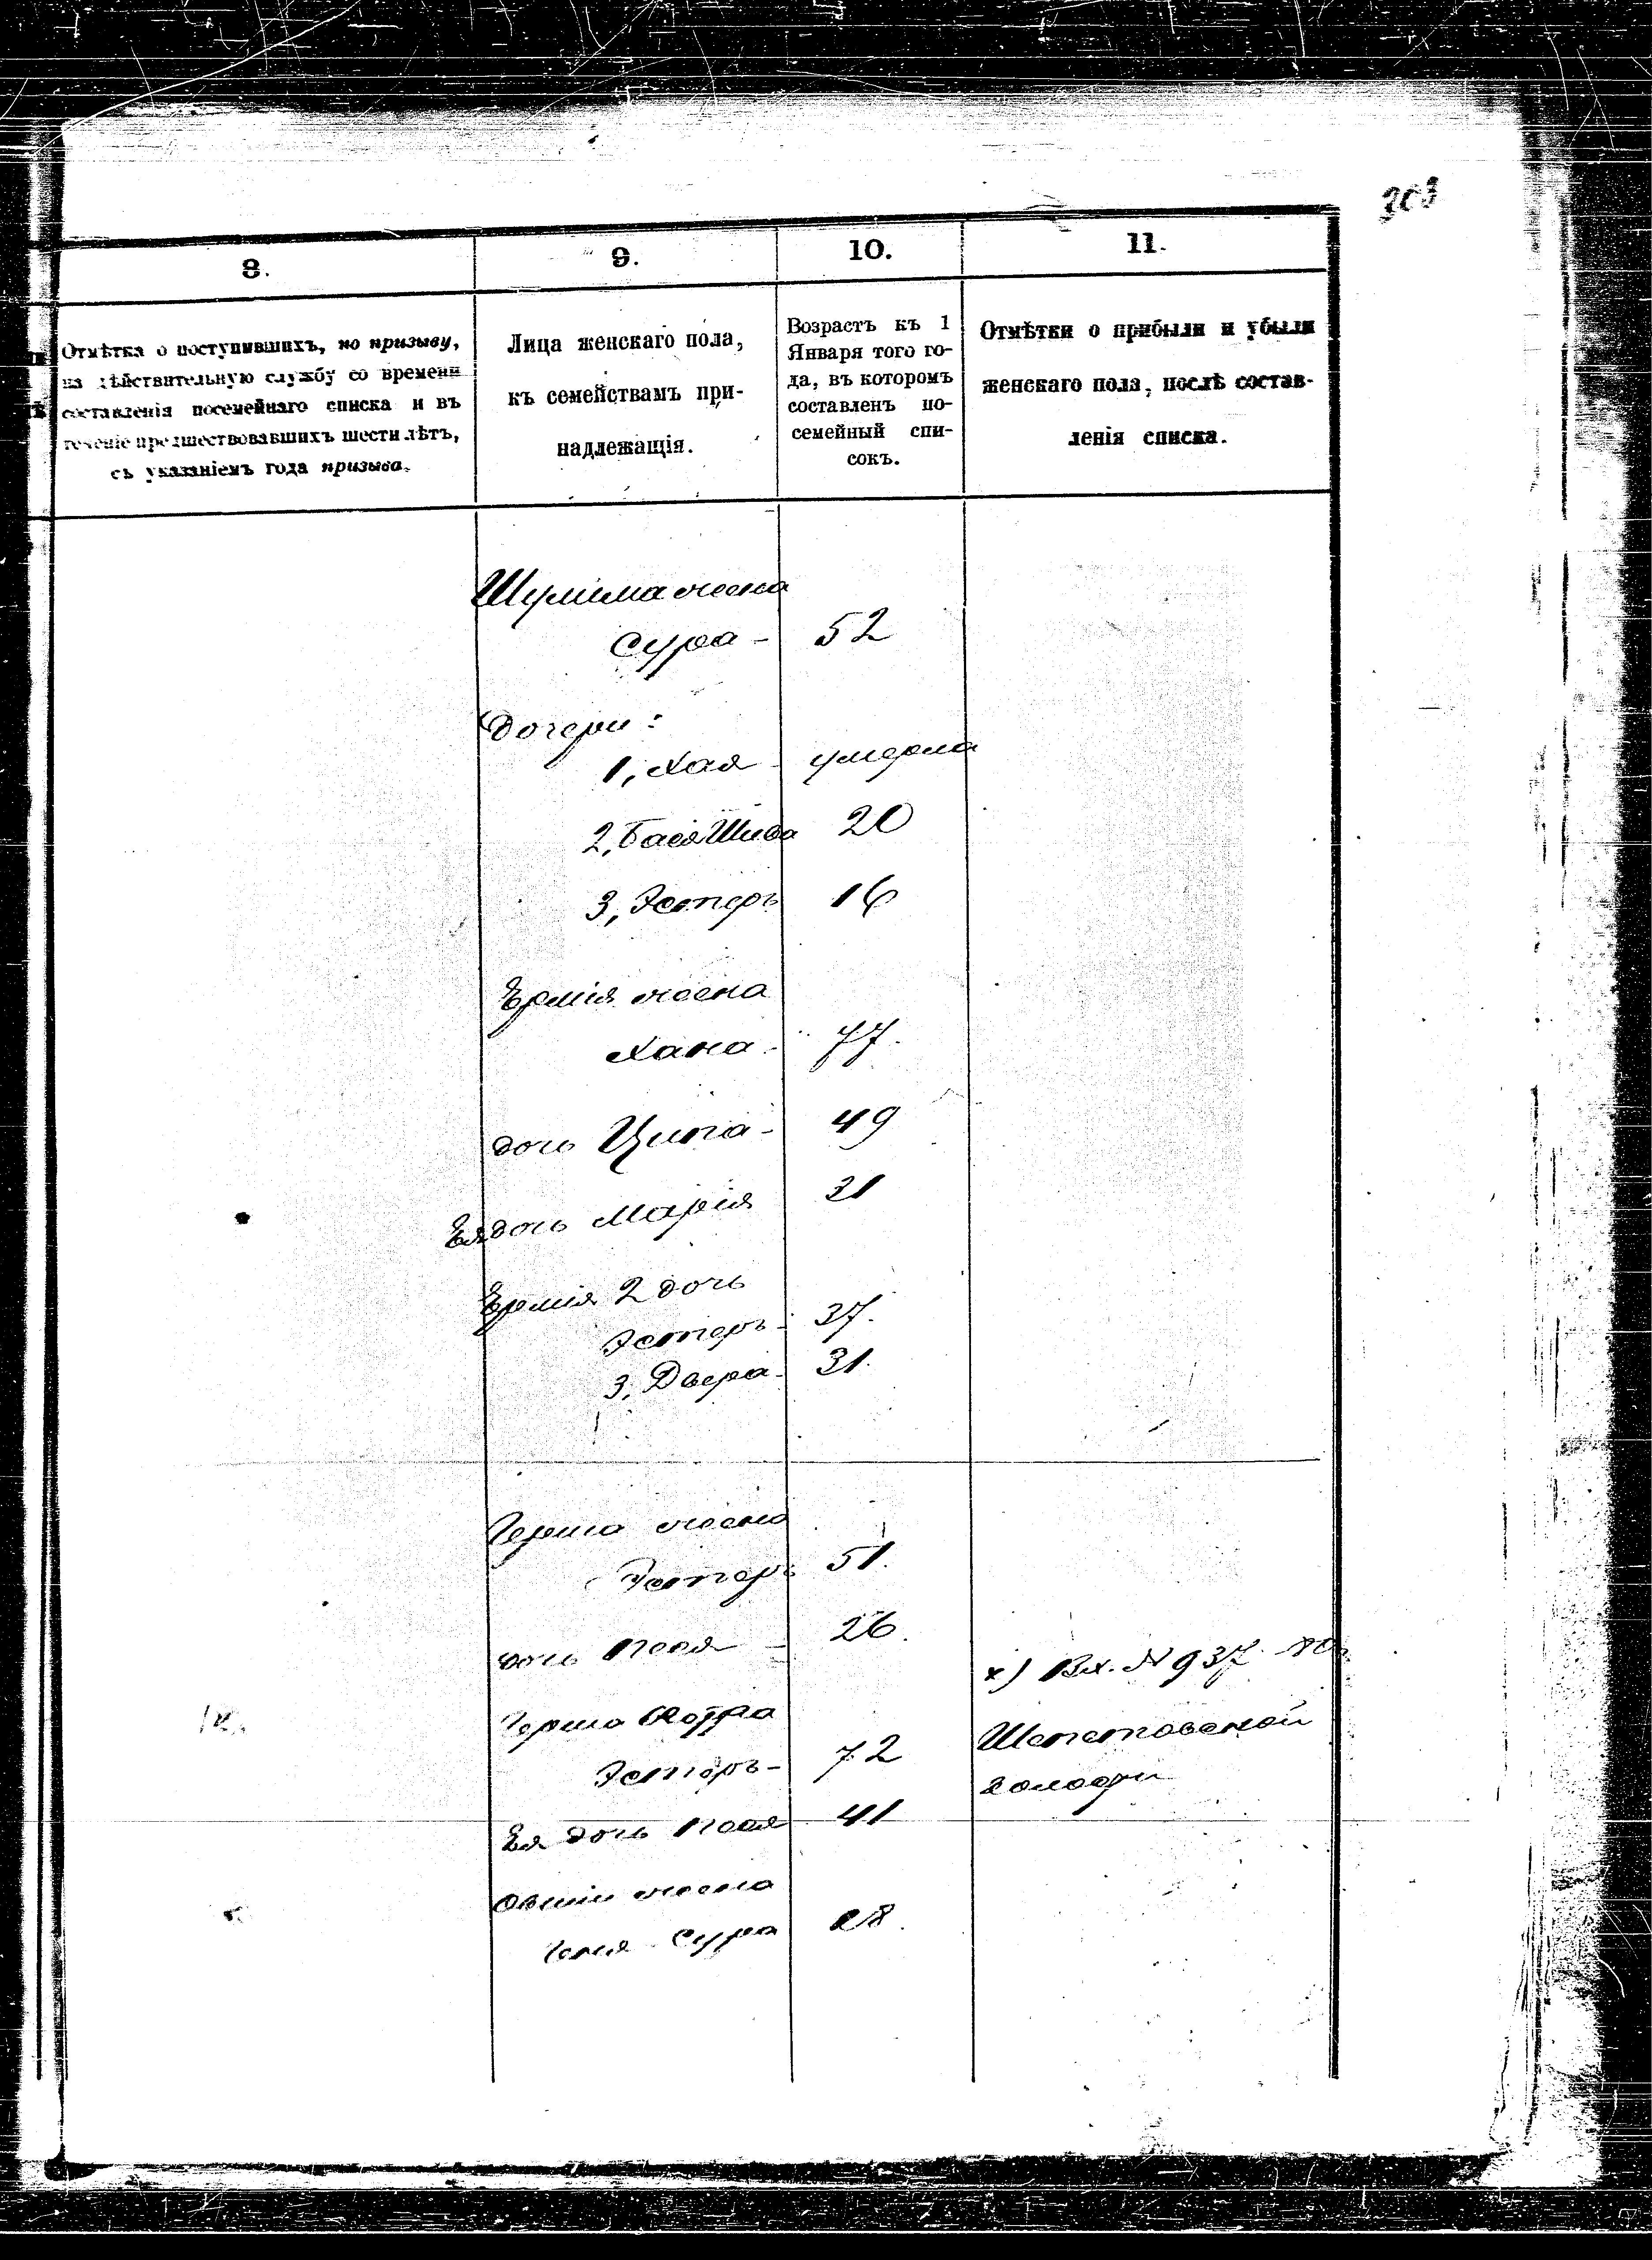 303
8.
9.
10.
11.
Отмѣтка о поступившихъ, по призыву,
на дѣйствительную службу со времени
составленія посемейнаго списка и въ
теченіе предшествовавшихъ шести лѣтъ,
съ указаніемъ года призыва.
Лица женскаго пола,
къ семействамъ при-
надлежащія.
Возрастъ къ 1
Января того го-
да, въ которомъ
составленъ по-
семейный спи-
сокъ.
Отмѣтки о прибыли и убыли
женскаго пола, послѣ состав-
ленія списка.
Шулима жена
Сура - 52
Дочери:
1, Хая - умерла
2, Бася Шива 20
3, Эстеръ 16
Ермія жена
Хана - 77.
дочь Ципа - 49
Ея дочь Марія 31
Ермія 2 дочь
Эстеръ - 37.
3, Двера - 31.
Герша жена
Эстеръ 51.
дочь - 26.
х) Вх. N 937
Герша
Эстеръ - 72
Шепетовской
Ея дочь 41
жена
Сура 28.